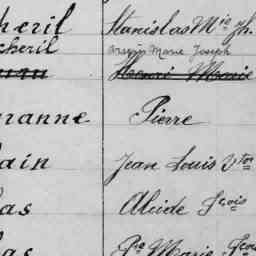 heril Stanislas M^ie Jh.
cheril Marie Joseph
Henri Marie
ranne Pierre
ain Jean Louis V^tor
as Alcide F^cois
as P^re Marie